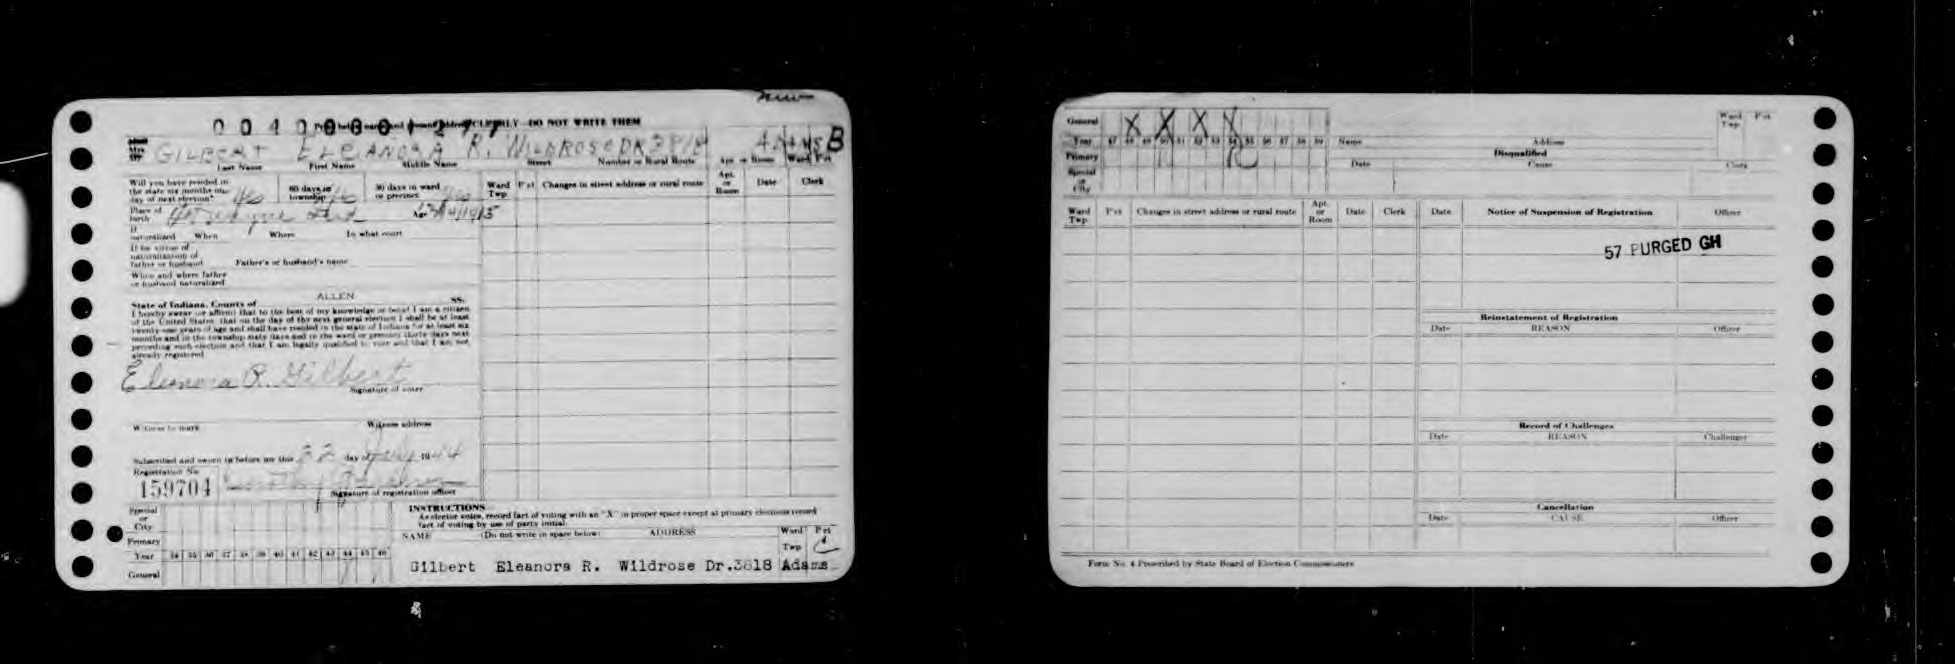 new
0 0 4 0 0 0 0 1 2 7 7
CLEARLY—DO NOT WRITE THEM
Mrs. GILBERT ELEANORA R. WILDROSE DR 3818 ADAMS B
Last Name First Name Middle Name Street Number or Rural Route Apt. or Room Ward Pct
Will you have resided in the state six months on day of next election? Yes 60 days in township Yes 30 days in ward or precinct Yes
Ward Twp. Pct Changes in street address or rural route Apt. or Room Date Clerk
Place of birth Ft Wayne Ind Age
If naturalized When Where In what court
If by virtue of naturalization of father or husband Father's or husband's name
When and where father or husband naturalized
State of Indiana, County of ALLEN SS.
I hereby swear (or affirm) that to the best of my knowledge or belief I am a citizen
of the United States, that on the day of the next general election I shall be at least
twenty-one years of age and shall have resided in the state of Indiana for at least six
months and in the township sixty days and in the ward or precinct thirty days next
preceding such election and that I am legally qualified to vote and that I am not
already registered
Eleanora R. Gilbert
Signature of voter
Witness to mark Witness address
Subscribed and sworn to before me this 22 day of July 19 44
Registration No
159704
Signature of registration officer
Special or City
Primary
Year 34 35 36 37 38 39 40 41 42 43 44 45 46
General
INSTRUCTIONS
As elector votes, record fact of voting with an "X" in proper space except at primary elections record
fact of voting by use of party initial.
NAME (Do not write in space below) ADDRESS Ward Twp Pct
Gilbert Eleanora R. Wildrose Dr.3818 Adams
General X X X X
Year 47 48 49 50 51 52 53 54 55 56 57 58 59
Primary R
Special or City
Name Address Ward Twp. Pct
Disqualified
Date Cause Clerk
Ward Twp. Pct Changes in street address or rural route Apt. or Room Date Clerk
Date Notice of Suspension of Registration Officer
57 PURGED GH
Reinstatement of Registration
Date REASON Officer
Record of Challenges
Date REASON Challenger
Cancellation
Date CAUSE Officer
Form No. 4 Prescribed by State Board of Election Commissioners